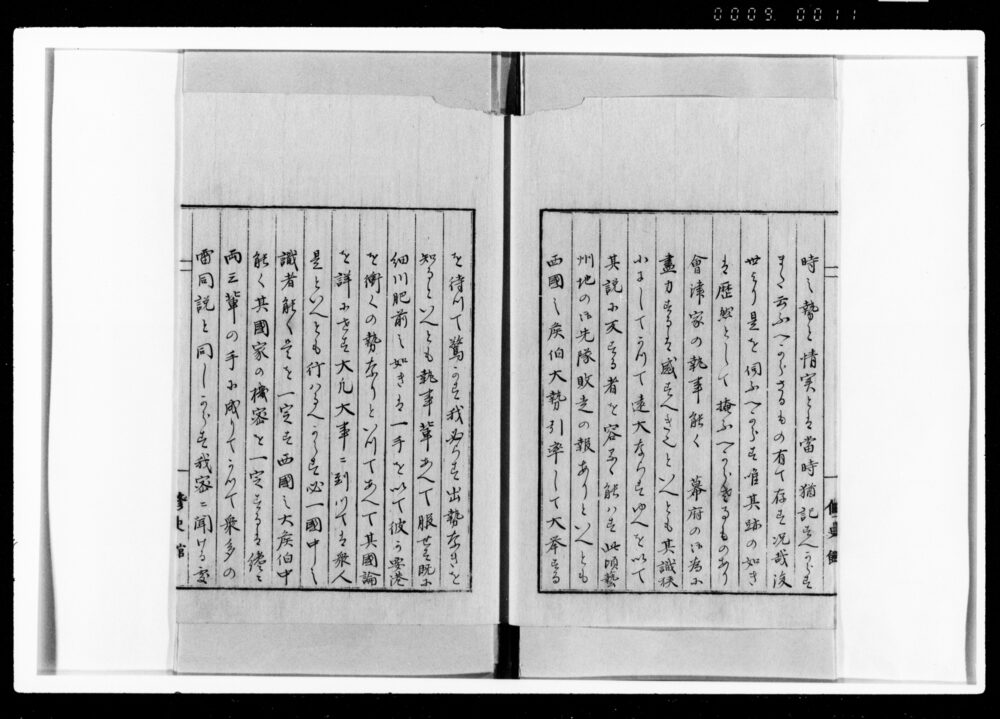 0009 0011
時之勢と情実とは當時猶記すへからす
また云ふへからさるもの有て存す况哉後
世より是を伺ふへからす唯其跡の如き
は歴然として掩ふへからさるものあり
會津家の執事能く 幕府の御為に
盡力するは感すへきと いへとも其識狭
小にして
かつて遠大ならす ゆへを以て
其説に天する者を容るゝ能はす此頃藝
州地の御先隊敗走の報ありといへとも
西國之侯伯大勢引率して大挙する
を待つて驚かす我必らす出勢なきを
知るといへとも執事輩あへて服せす既に
細川肥前之如きは一手を以て彼か要港
を衝くの勢なりといつてあへて其國論
を詳にせす大凡大事ニ到つては衆人
是といへとも行はるへからす必一國中之
識者能く是を一定す西國之大侯伯中
能く其國家の機密を一定するは僅に
両三輩の手に成りてかつて衆多の
雷同説と同しからす我密ニ聞ける處
修史館